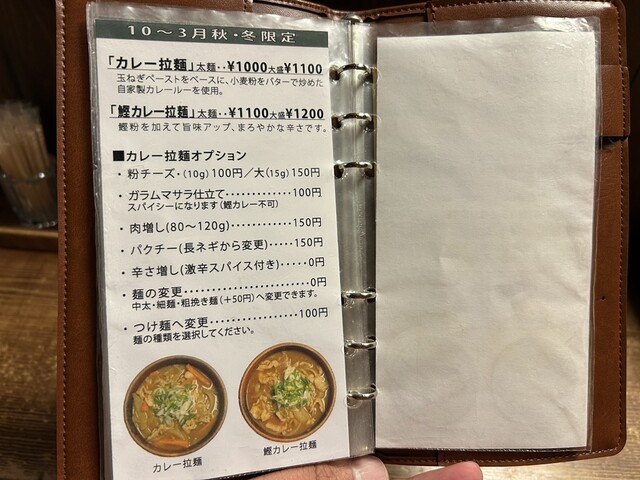 10～3月秋・冬限定
「カレー拉麺」太麺‥¥1000大盛¥1100
玉ねぎペーストをベースに、小麦粉をバターで炒めた
自家製カレールーを使用。
「鰹カレー拉麺」太麺‥¥1100大盛¥1200
鰹粉を加えて旨味アップ、まろやかな辛さです。
■カレー拉麺オプション
・粉チーズ・(10g)100円／大(15g)150円
・ガラムマサラ仕立て・・・・・・・・・・・・・100円
スパイシーになります(鰹カレー不可)
・肉増し(80～120g)・・・・・・・・・・・・・150円
・パクチー(長ネギから変更)・・・・・150円
・辛さ増し(激辛スパイス付き)・・・・・0円
・麺の変更・・・・・・・・・・・・・・・・・・・・・0円
中太・細麺・粗挽き麺(+50円)へ変更できます。
・つけ麺へ変更・・・・・・・・・・・・・・・・100円
麺の種類を選択してください。
カレー拉麺
鰹カレー拉麺